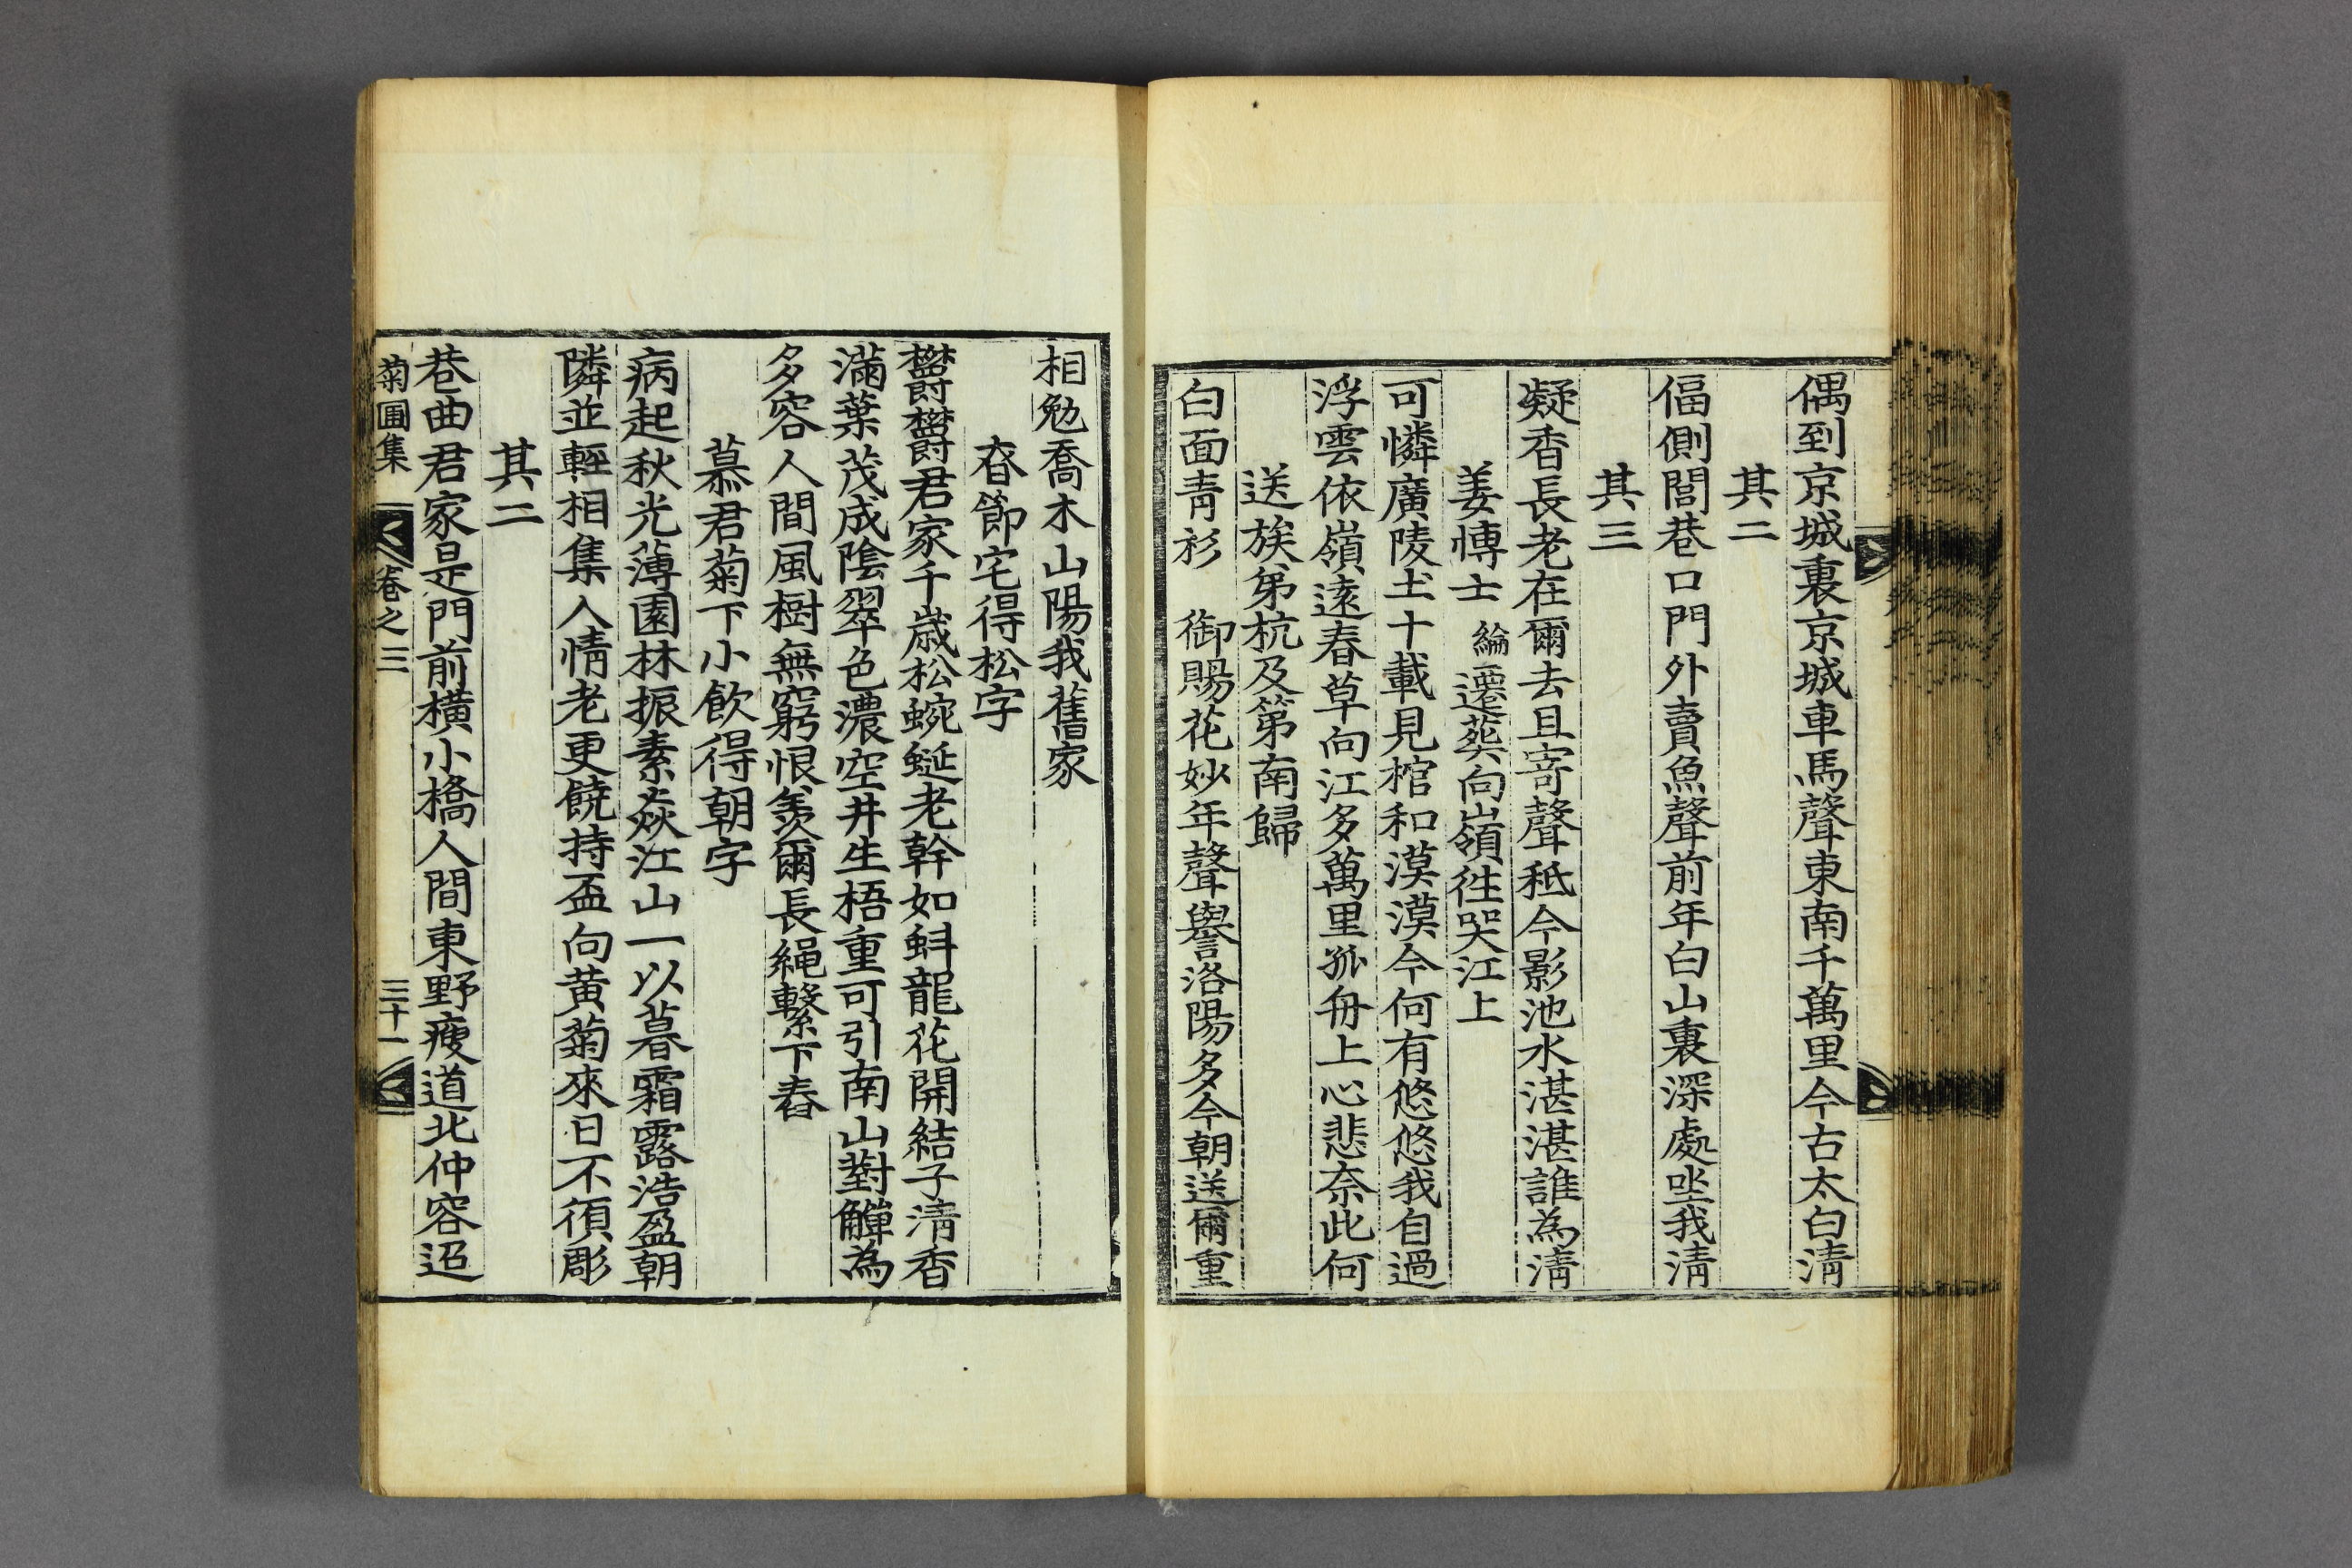 偶到京城裏京城車馬聲東南千萬里今古太白淸
其二
偪側閭巷口門外賣魚聲前年白山裏深處坐我淸
其三
凝香長老在爾去且寄聲秪今影池水湛湛誰為淸
姜博士綸遷葬向嶺徃哭江上
可憐廣陵土十載見棺和漠漠今何有悠悠我自過
浮雲依嶺遠春草向江多萬里孤舟上心悲奈此何
送族弟杭及第南歸
白面靑衫御賜花妙年聲譽洛陽多今朝送爾重
相勉喬木山陽我舊家
春節宅得松字
欝欝君家千歲松蜿蜒老幹如虯龍花開結子淸香
滿葉茂成陰翠色濃空井生梧重可引南山對觶為
多容人間風樹無窮恨羨爾長繩繫下舂
慕君菊下小飮得朝字
病起秋光薄園林振素焱江山一以暮霜露浩盈朝
隣並輕相集人情老更饒持盃向黃菊來日不須彫
其二
巷曲君家是門前橫小橋人間東野瘦道北仲容迢
菊圃集 卷之三 三十一